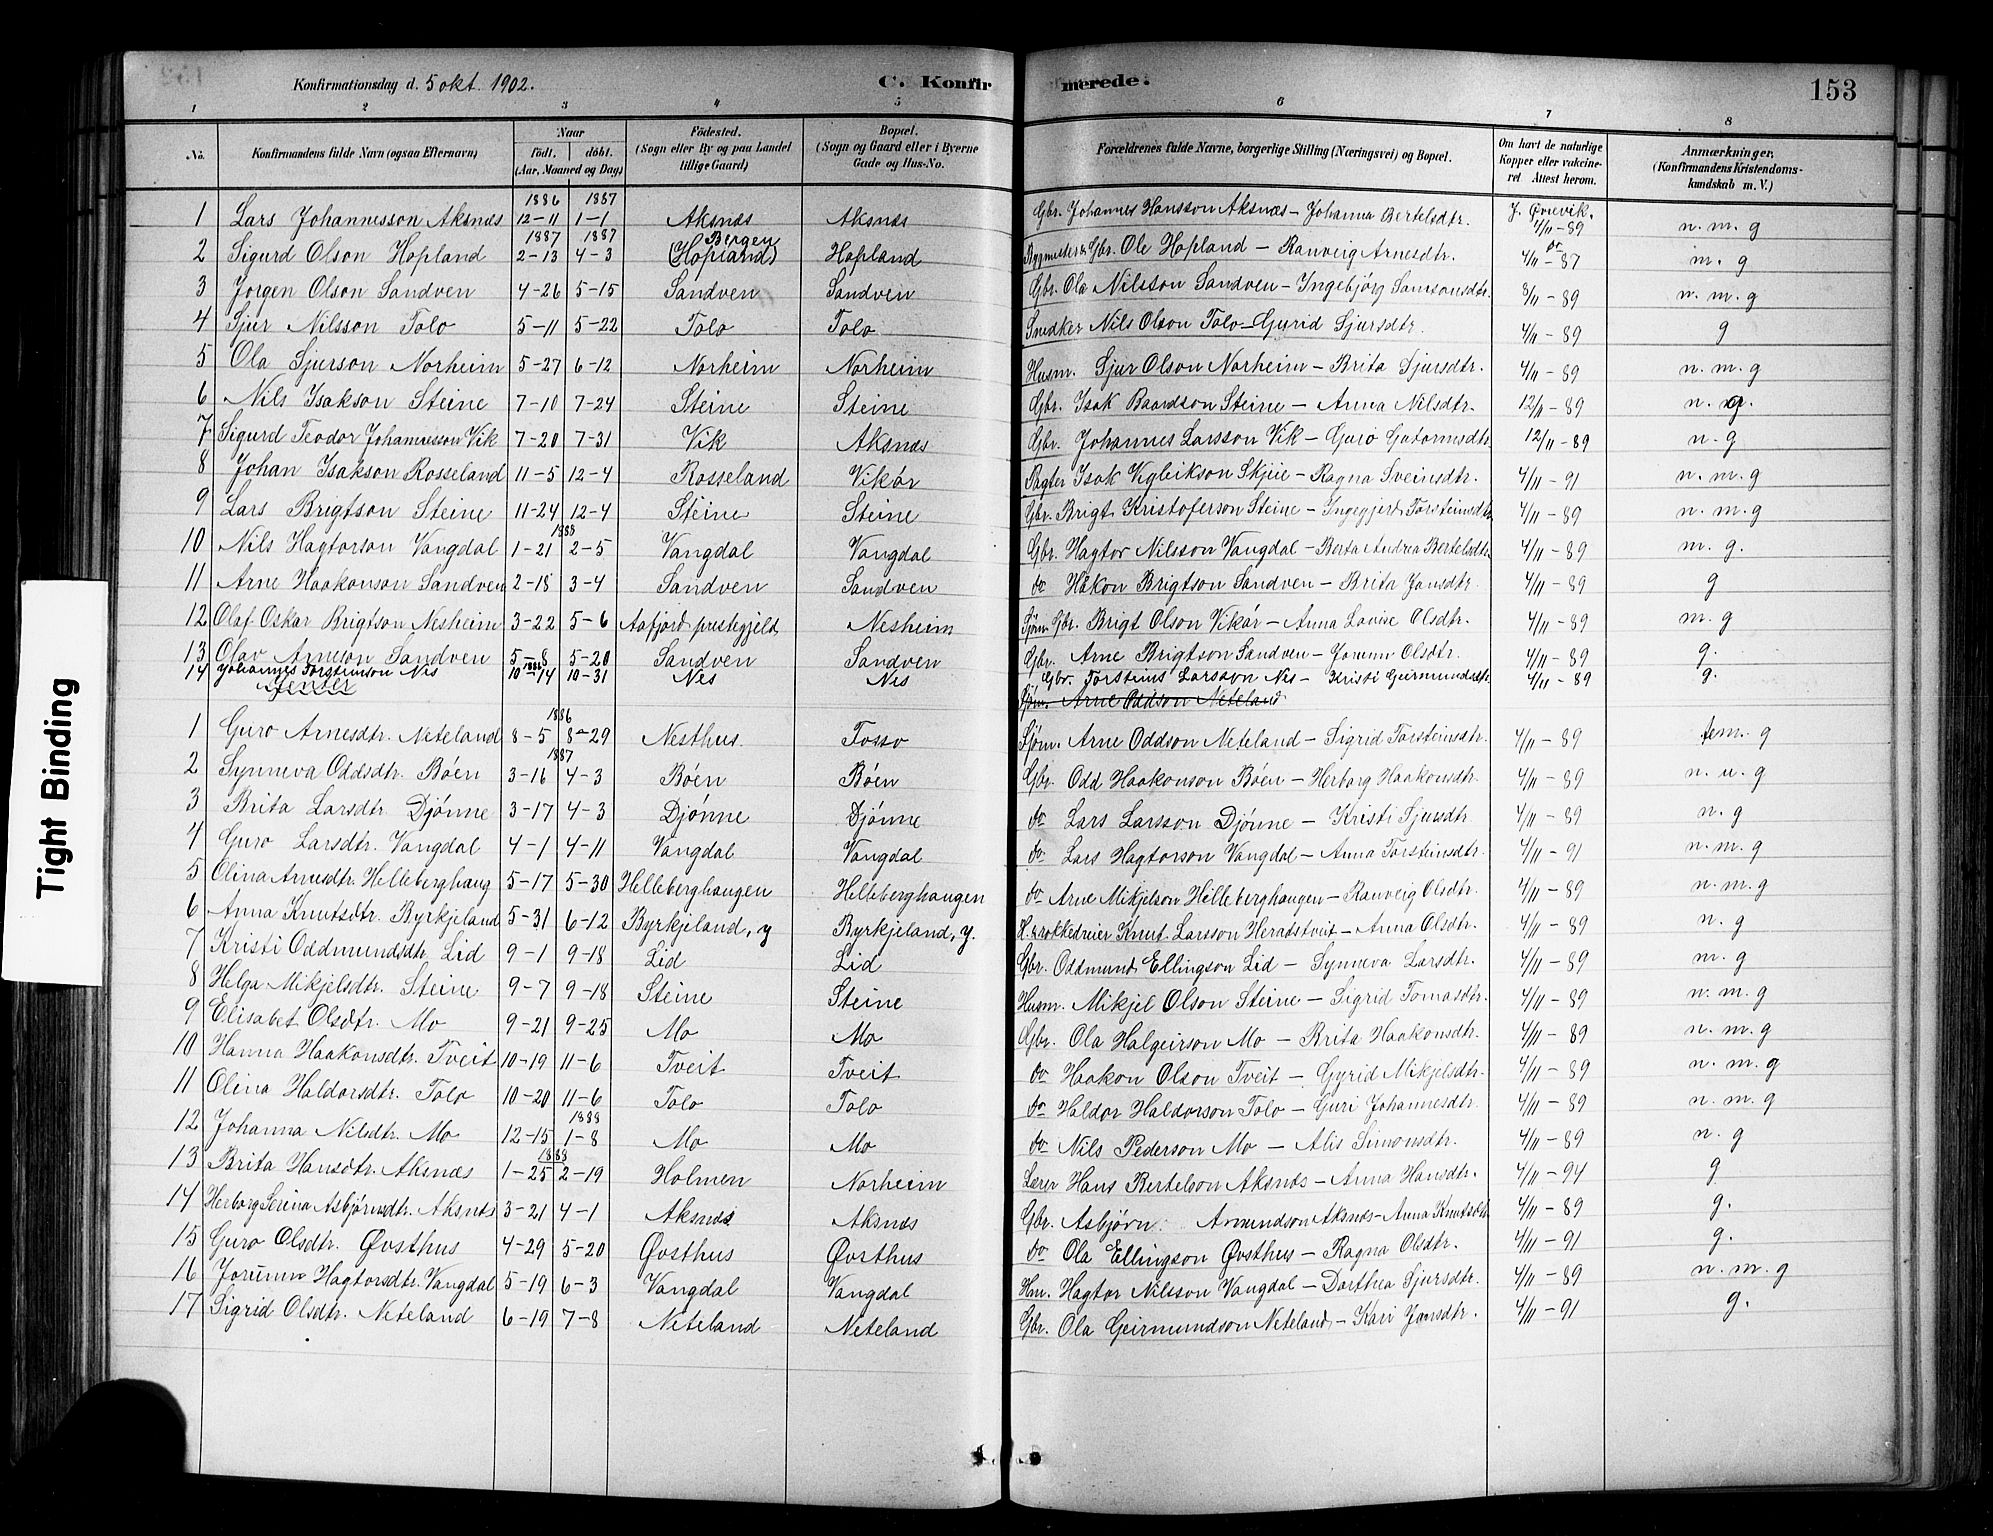 Konfirmationsdag d. 5 okt. 1902. C. Konfirmerede. 153
1 2 3 4 5 6 7 8
No. Konfirmandens fulde Navn (ogsaa Efternavn) Naar födt. döbt. (Aar, Maaned og Dag) Födested. (Sogn eller By og paa Landet tillige Gaard) Bopæl. (Sogn og Gaard eller i Byerne Gade og Hus-No. Forældrenes fulde Navne, borgerlige Stilling (Næringsvei) og Bopæl. Om havt de naturlige Kopper eller vakcineret Attest herom. Anmærkninger. (Konfirmandens Kristendomskundskab m. V.)
1886 1887
1 Lars Johannesson Aksnæs 12-11 1-1 Aksnæs Aksnæs Gbr. Johannes Hansson Aksnæs - Johanna Bertelsdtr. J. Øvrevik. 4/11-89 n. m. g
1887 1887 Bergen
2 Sigurd Olson Hopland 2-13 4-3 (Hopland) Hopland Bygmester & Gbr. Ole Hopland - Ranveig Arnesdtr. do 4/11-87 m. g
3 Jorgen Olson Sandven 4-26 5-15 Sandven Sandven Gbr. Ola Nilsson Sandven - Ingebjörg Samsonsdtr. 8/11-89 n. m. g
4 Sjur Nilsson Tolo 5-11 5-22 Tolo Tolo Snedker Nils Olson Tolo - Gurid Sjursdtr. 4/11-89 g
5 Ola Sjurson Norheim 5-27 6-12 Norheim Norheim Husm. Sjur Olson Norheim - Brita Sjursdtr. 4/11-89 n. m. g
6 Nils Isakson Steine 7-10 7-24 Steine Steine Gbr. Isak Baardson Steine - Anna Nilsdtr. 12/11-89 n. g.
7 Sigurd Teodor Johannesson Vik 7-20 7-31 Vik Aksnæs Gbr. Johannes Larsson Vik - Guro Guttormsdtr 12/11-89 n. g
8 Johan Isakson Rosseland 11-5 12-4 Rosseland Vikör Pagter Isak Vigleikson Skjeie - Ragna Sveinsdtr. 4/11-91 n. m. g
9 Lars Brigtson Steine 11-24 12-4 Steine Steine Gbr. Brigt Kristoferson Steine - Ingegjerd Torsteinsdtr 4/11-89 n. m. g
1888
10 Nils Hagtorson Vangdal 1-21 2-5 Vangdal Vangdal Gbr. Hagtor Nilsson Vangdal - Berta Andrea Bertelsdtr 4/11-89 m. g.
11 Arne Haakonson Sandven 2-18 3-4 Sandven Sandven do Håkon Brigtson Sandven - Brita Jonsdtr. 4/11-89 g
12 Olaf Oskar Brigtson Nesheim 3-22 5-6 Aafjord prestegjeld Nesheim Sjöm. Gbr. Brigt Olson Vikör - Anna Lovise Olsdtr. 4/11-89 m. g
13 Olav Arneson Sandven 5-8 5-20 Sandven Sandven Gbr. Arne Brigtson Sandven - Jorunn Olsdtr. 4/11-89 g.
14 Johannes Torsteinson Nes 10-14 10-31 Nes Nes Gbr. Torsteins Larsson Nes - Kristi Geirmundsdtr 4/11-89 g.
Jenter Sjöm. Arne Oddson Neteland
1886
1 Guro Arnesdtr. Neteland 8-5 8-29 Nesthus. Tosso Sjöm. Arne Oddson Neteland - Sigrid Torsteinsdtr. 4/11-89 tem. g
1887
2 Synneva Oddsdtr. Böen 3-16 4-3 Böen Böen Gbr. Odd Haakonson Böen - Herborg Haakonsdtr. 4/11-89 n. u. g
3 Brita Larsdtr. Djönne 3-17 4-3 Djönne Djönne do Lars Larsson Djönne - Kristi Sjursdtr 4/11-89 n. g
4 Guro Larsdtr. Vangdal 4-1 4-11 Vangdal Vangdal do Lars Hagtorson Vangdal - Anna Torsteinsdtr. 4/11-91 n. m. g
5 Olina Arnesdtr. Helleberghaug 5-17 5-30 Helleberghaugen Helleberghaugen do Arne Mikjelson Helleberghaugen - Ranveig Olsdtr. 4/11-89 n. m. g
6 Anna Knutsdtr. Byrkjeland 5-31 6-12 Byrkjeland, y Byrkjeland, y. H. & rokkedreier Knut Larsson Heradstveit - Anna Olsdtr. 4/11-89 n. g
7 Kristi Oddmundsdtr. Lid 9-1 9-18 Lid Lid Gbr. Oddmund Ellingson Lid - Synneva Larsdtr. 4/11-89 m. g
8 Helga Mikjelsdtr. Steine 9-7 9-18 Steine Steine Husm. Mikjel Olson Steine - Sigrid Tomasdtr. 4/11-89 n. m. g
9 Elisabet Olsdtr. Mo 9-21 9-25 Mo Mo Gbr. Ola Halgeirson Mo - Brita Haakonsdtr. 4/11-89 n. m. g
10 Hanna Haakonsdtr. Tveit 10-19 11-6 Tveit Tveit do Haakon Olson Tveit - Gyrid Mikjelsdtr. 4/11-89 n. m. g
11 Olina Haldorsdtr. Tolo 10-20 11-6 Tolo Tolo do Haldor Haldorson Tolo - Guri Johannesdtr. 4/11-89 n. m. g
1888
12 Johanna Nilsdtr. Mo 12-15 1-8 Mo Mo do Nils Pederson Mo - Alis Simonsdtr. 4/11-89 n. g
1888
13 Brita Hansdtr. Aksnæs 1-25 2-19 Holmen Norheim Lærer Hans Bertelson Aksnæs - Anna Hansdtr. 4/11-94 g
14 Herborg Serina Asbjørnsdtr. Aksnes 3-21 4-1 Aksnæs Aksnæs Gbr. Asbjørn Amundson Aksnæs - Anna Knutsdtr 4/11-89 g.
15 Guro Olsdtr. Øvsthus 4-29 5-20 Øvsthus Øvsthus do Ola Ellingson Øvsthus - Ragna Olsdtr. 4/11-91 g.
16 Jorunn Hagtorsdtr. Vangdal 5-19 6-3 Vangdal Vangdal Hm. Hagtor Nilsson Vangdal - Dorthea Sjursdtr. 4/11-89 n. m. g
17 Sigrid Olsdtr. Neteland 6-19 7-8 Neteland Neteland Gbr. Ola Geirmundson Neteland - Kari Jonsdtr. 4/11-91 g.
Tight Binding